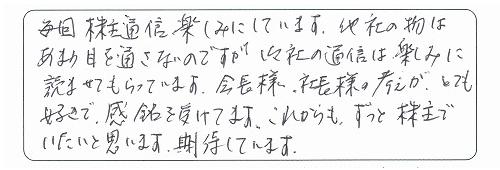 毎回 株主通信 楽しみにしています。他社の物は
あまり目を通さないのですが 御社の通信は 楽しみに
読ませてもらっています。会長様、社長様の考えが、とても
好きで、感銘を受けてます。これからも、ずっと 株主で
いたいと思います。期待しています。